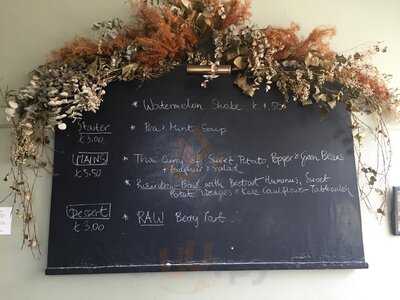 * Watermelon Shake £4.50
Starter
£3.00
* Pea + Mint Soup
MAINS
£5.50
* Thai Curry of Sweet Potato Pepper + Green Beans
+ salad
* Rainbow Bowl with Beetroot Hummus, Sweet
Potato Wedges + Kale Cauliflower Tabbouleh
Dessert
£3.00
* RAW Berry Tart